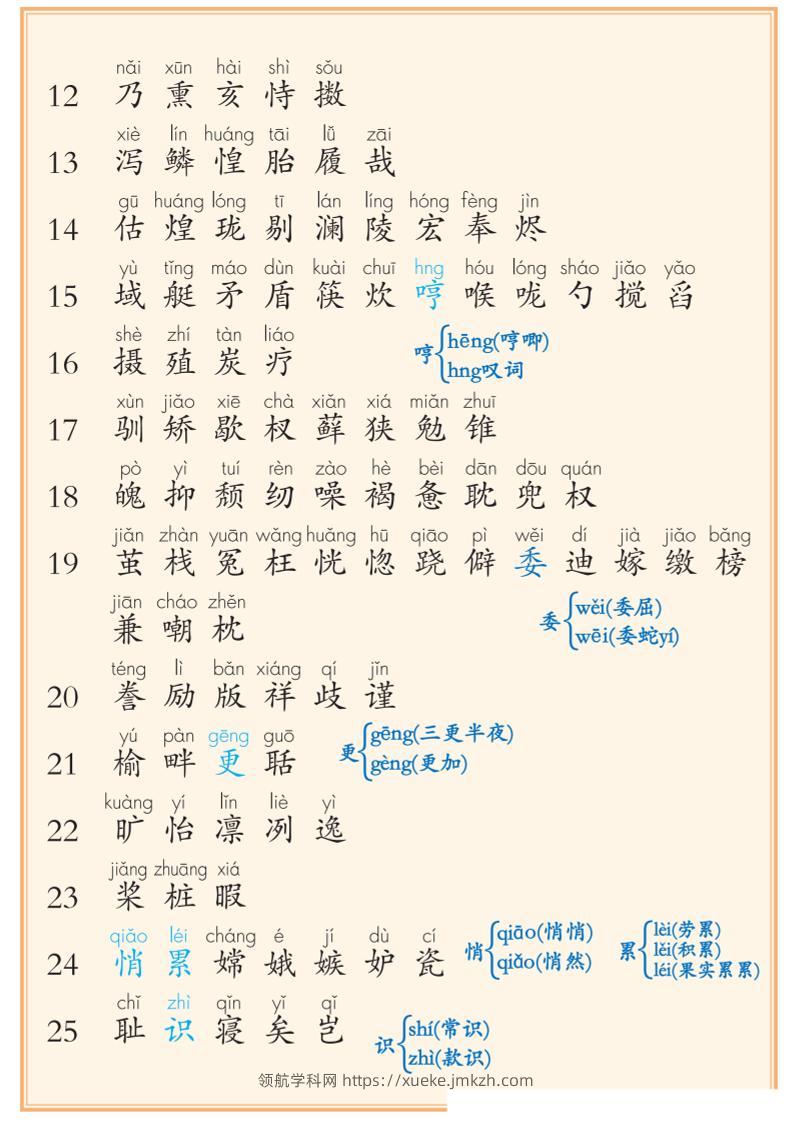 nǎi xūn hài shì sǒu
12 乃 熏 亥 恃 擞
xiè lín huáng tāi lǚ zāi
13 泻 鳞 惶 胎 履 哉
gū huáng lóng tī lán líng hóng fèng jìn
14 估 煌 珑 剔 澜 陵 宏 奉 烬
yù tǐng máo dùn kuài chuī hng hóu lóng sháo jiǎo yǎo
15 域 艇 矛 盾 筷 炊 哼 喉 咙 勺 搅 舀
shè zhí tàn liáo
16 摄 殖 炭 疗
哼 hēng(哼唧)
hng叹词
xùn jiǎo xiē chà xiǎn xiá miǎn zhuī
17 驯 矫 歇 杈 藓 狭 勉 锥
pò yì tuí rèn zào hè bèi dān dōu quán
18 魄 抑 颓 纫 噪 褐 惫 耽 兜 权
jiǎn zhàn yuān wǎng huǎng hū qiāo pì wěi dí jià jiǎo bǎng
19 茧 栈 冤 枉 恍 惚 跷 僻 委 迪 嫁 缴 榜
jiān cháo zhěn
兼 嘲 枕
委 wěi(委屈)
wēi(委蛇yí)
téng lì bǎn xiáng qí jǐn
20 誊 励 版 祥 歧 谨
yú pàn gēng guō
21 榆 畔 更 聒
更 gēng(三更半夜)
gèng(更加)
kuàng yí lǐn liè yì
22 旷 怡 凛 冽 逸
jiǎng zhuāng xiá
23 桨 桩 暇
qiǎo léi cháng é jí dù cí
24 悄 累 嫦 娥 嫉 妒 瓷
悄 qiāo(悄悄)
qiǎo(悄然)
累 lèi(劳累)
lěi(积累)
léi(果实累累)
chǐ zhì qǐn yǐ qǐ
25 耻 识 寝 矣 岂
识 shí(常识)
zhì(款识)
领航学科网 https://xueke.jmkzh.com